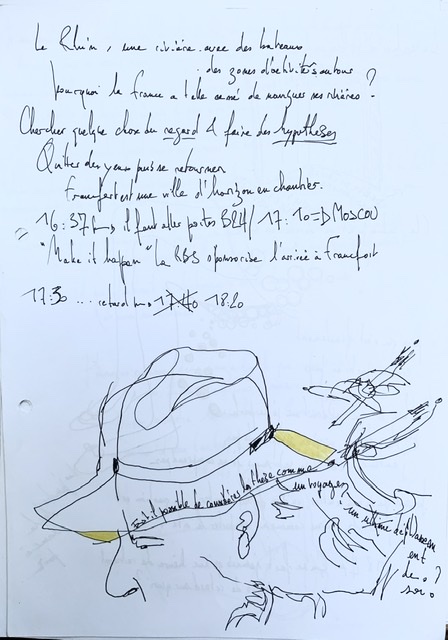 Le Rhin, une rivière avec des bateaux
des zones d'activités autour
pourquoi la France a t'elle cessé de naviguer ses rivières ?
Chercher quelque chose du regard & faire des hypothèses
Quitter des yeux puis se retourner
Francfort est une ville d'horizon en chantier.
16:37 il faut aller portes B24/ 17:10 => MOSCOU
"Make it happen" la RBS sponsorise l'arrivée à Francfort
17:30 ... retard 17:40 18:20
est-il possible de considérer la thèse comme
un voyage,
un ultime déplacem
ent
de
soi ?